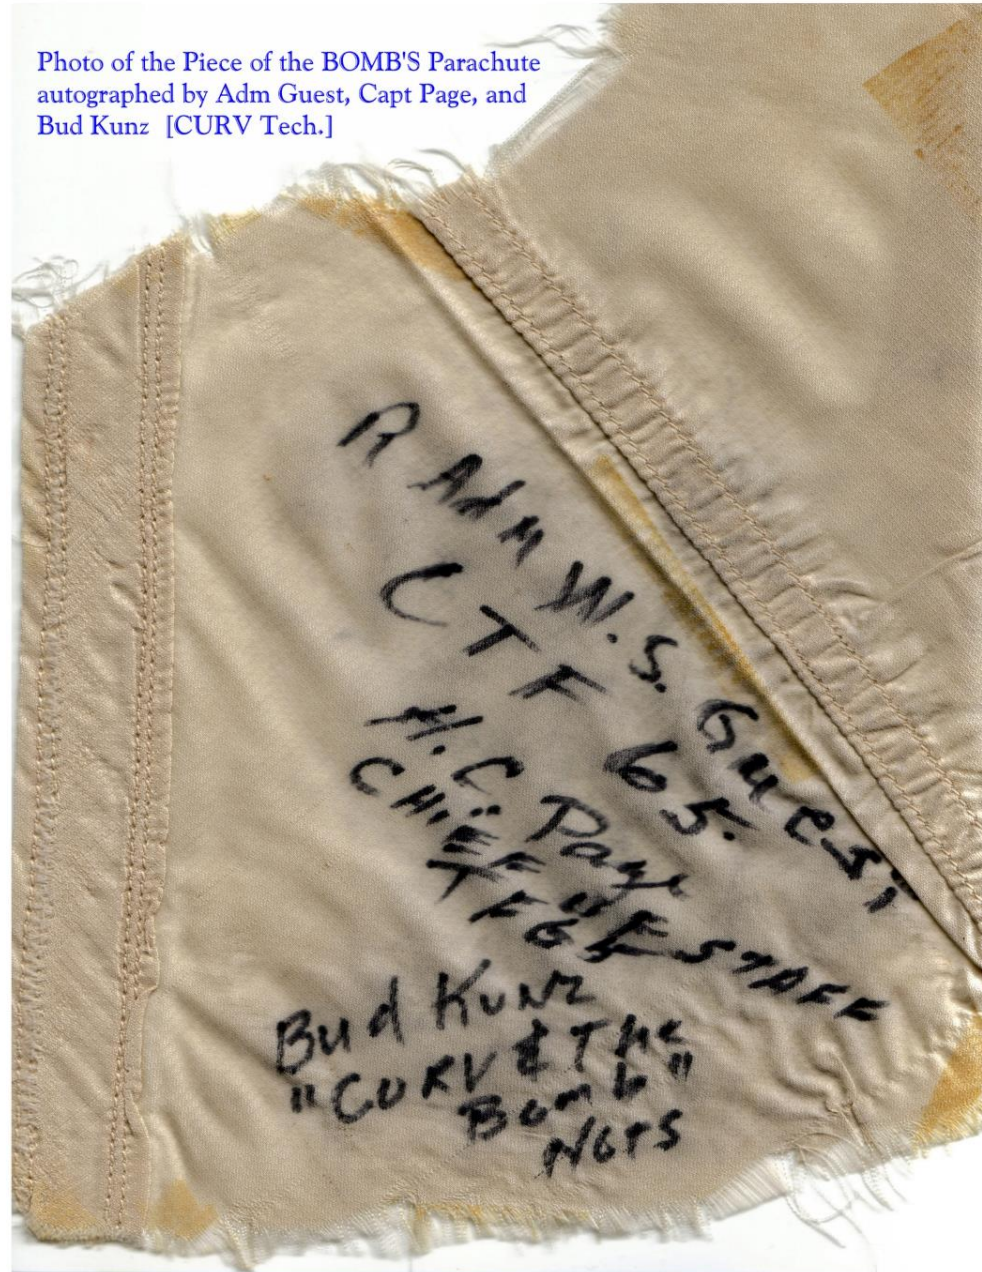 Photo of the Piece of the BOMB'S Parachute
autographed by Adm Guest, Capt Page, and
Bud Kunz [CURV Tech.]
R Adm W.S. Guest
CTF 65.
H.C. Page
CHIEF OF STAFF
TF65
Bud Kunz
"CURV & The
Bomb"
NOTS